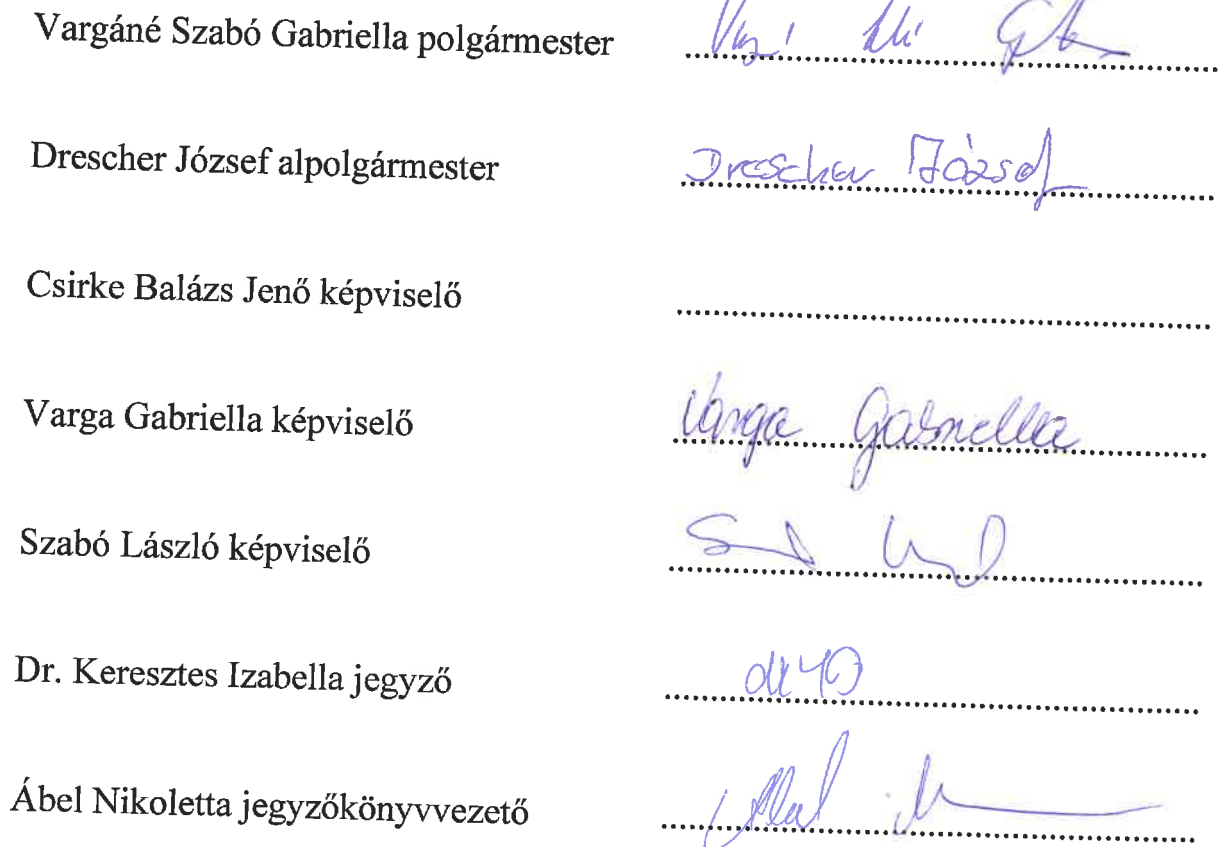 Vargáné Szabó Gabriella polgármester
Drescher József alpolgármester Drescher József
Csirke Balázs Jenő képviselő
Varga Gabriella képviselő Varga Gabriella
Szabó László képviselő
Dr. Keresztes Izabella jegyző
Ábel Nikoletta jegyzőkönyvvezető